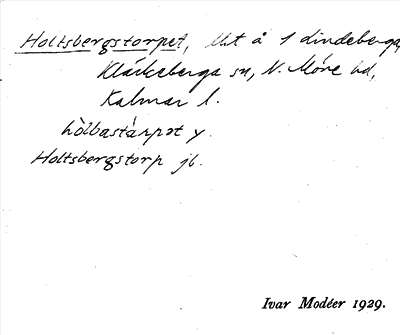 Holtsbergstorpet, tht å 1 Lindeberga,
Kläckeberga sn, N. Möre hd,
Kalmar l.
hòlbastárpət y.
Holtsbergstorp jb.
Ivar Modéer 1929.